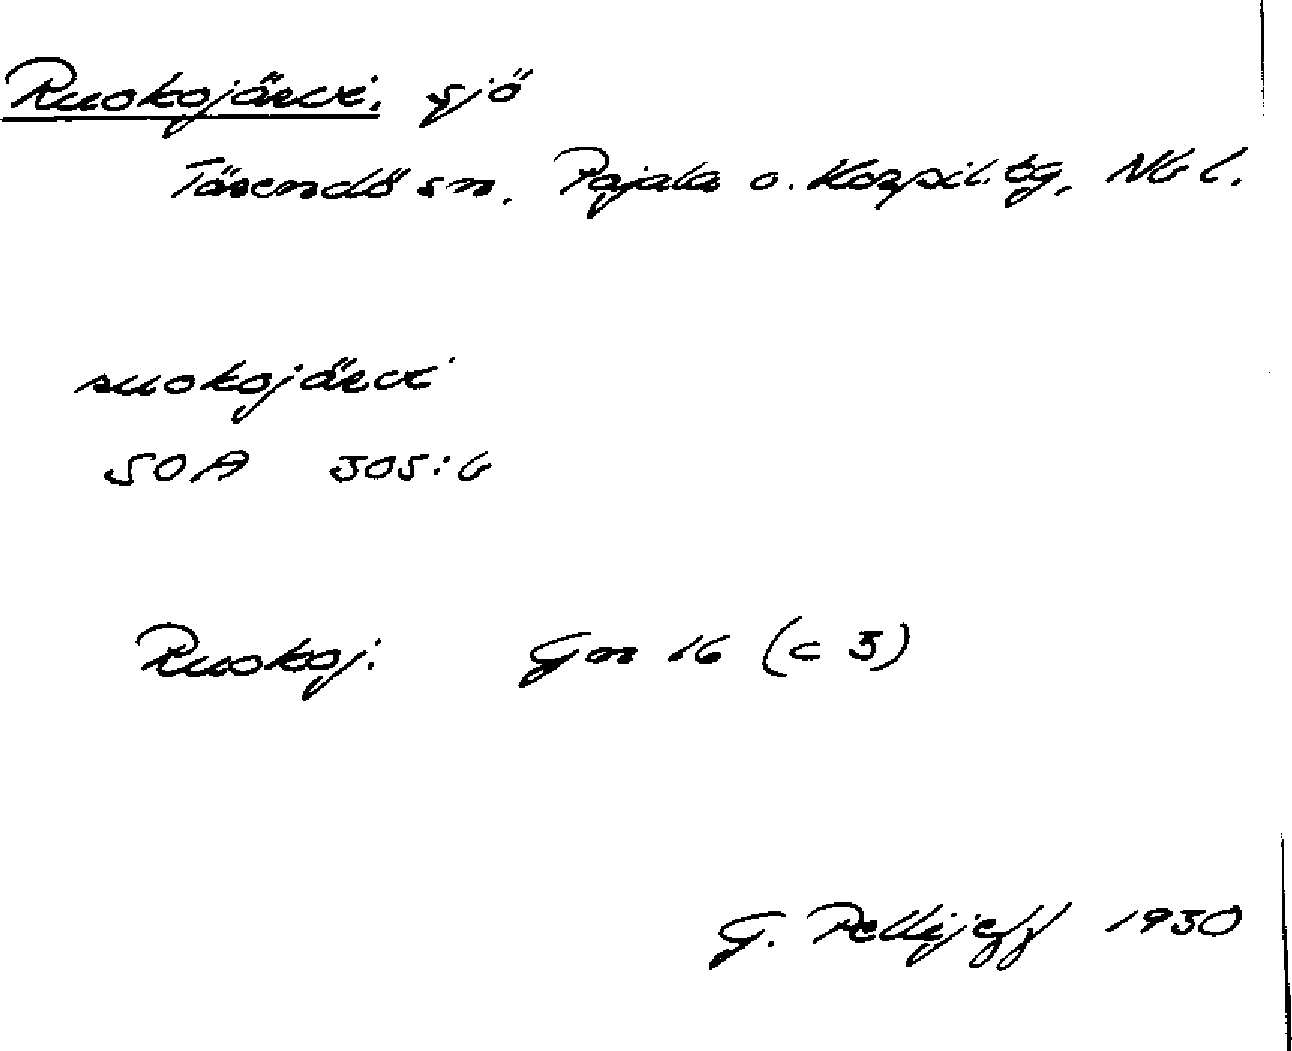 Ruokojärvi, sjö
Tärendö sn. Pajala o. Korpil. tg, Nb l.
ruokojärvi
SOA 305:6
Ruokoj. Gn 16 (c 3)
G. Pellijeff 1930